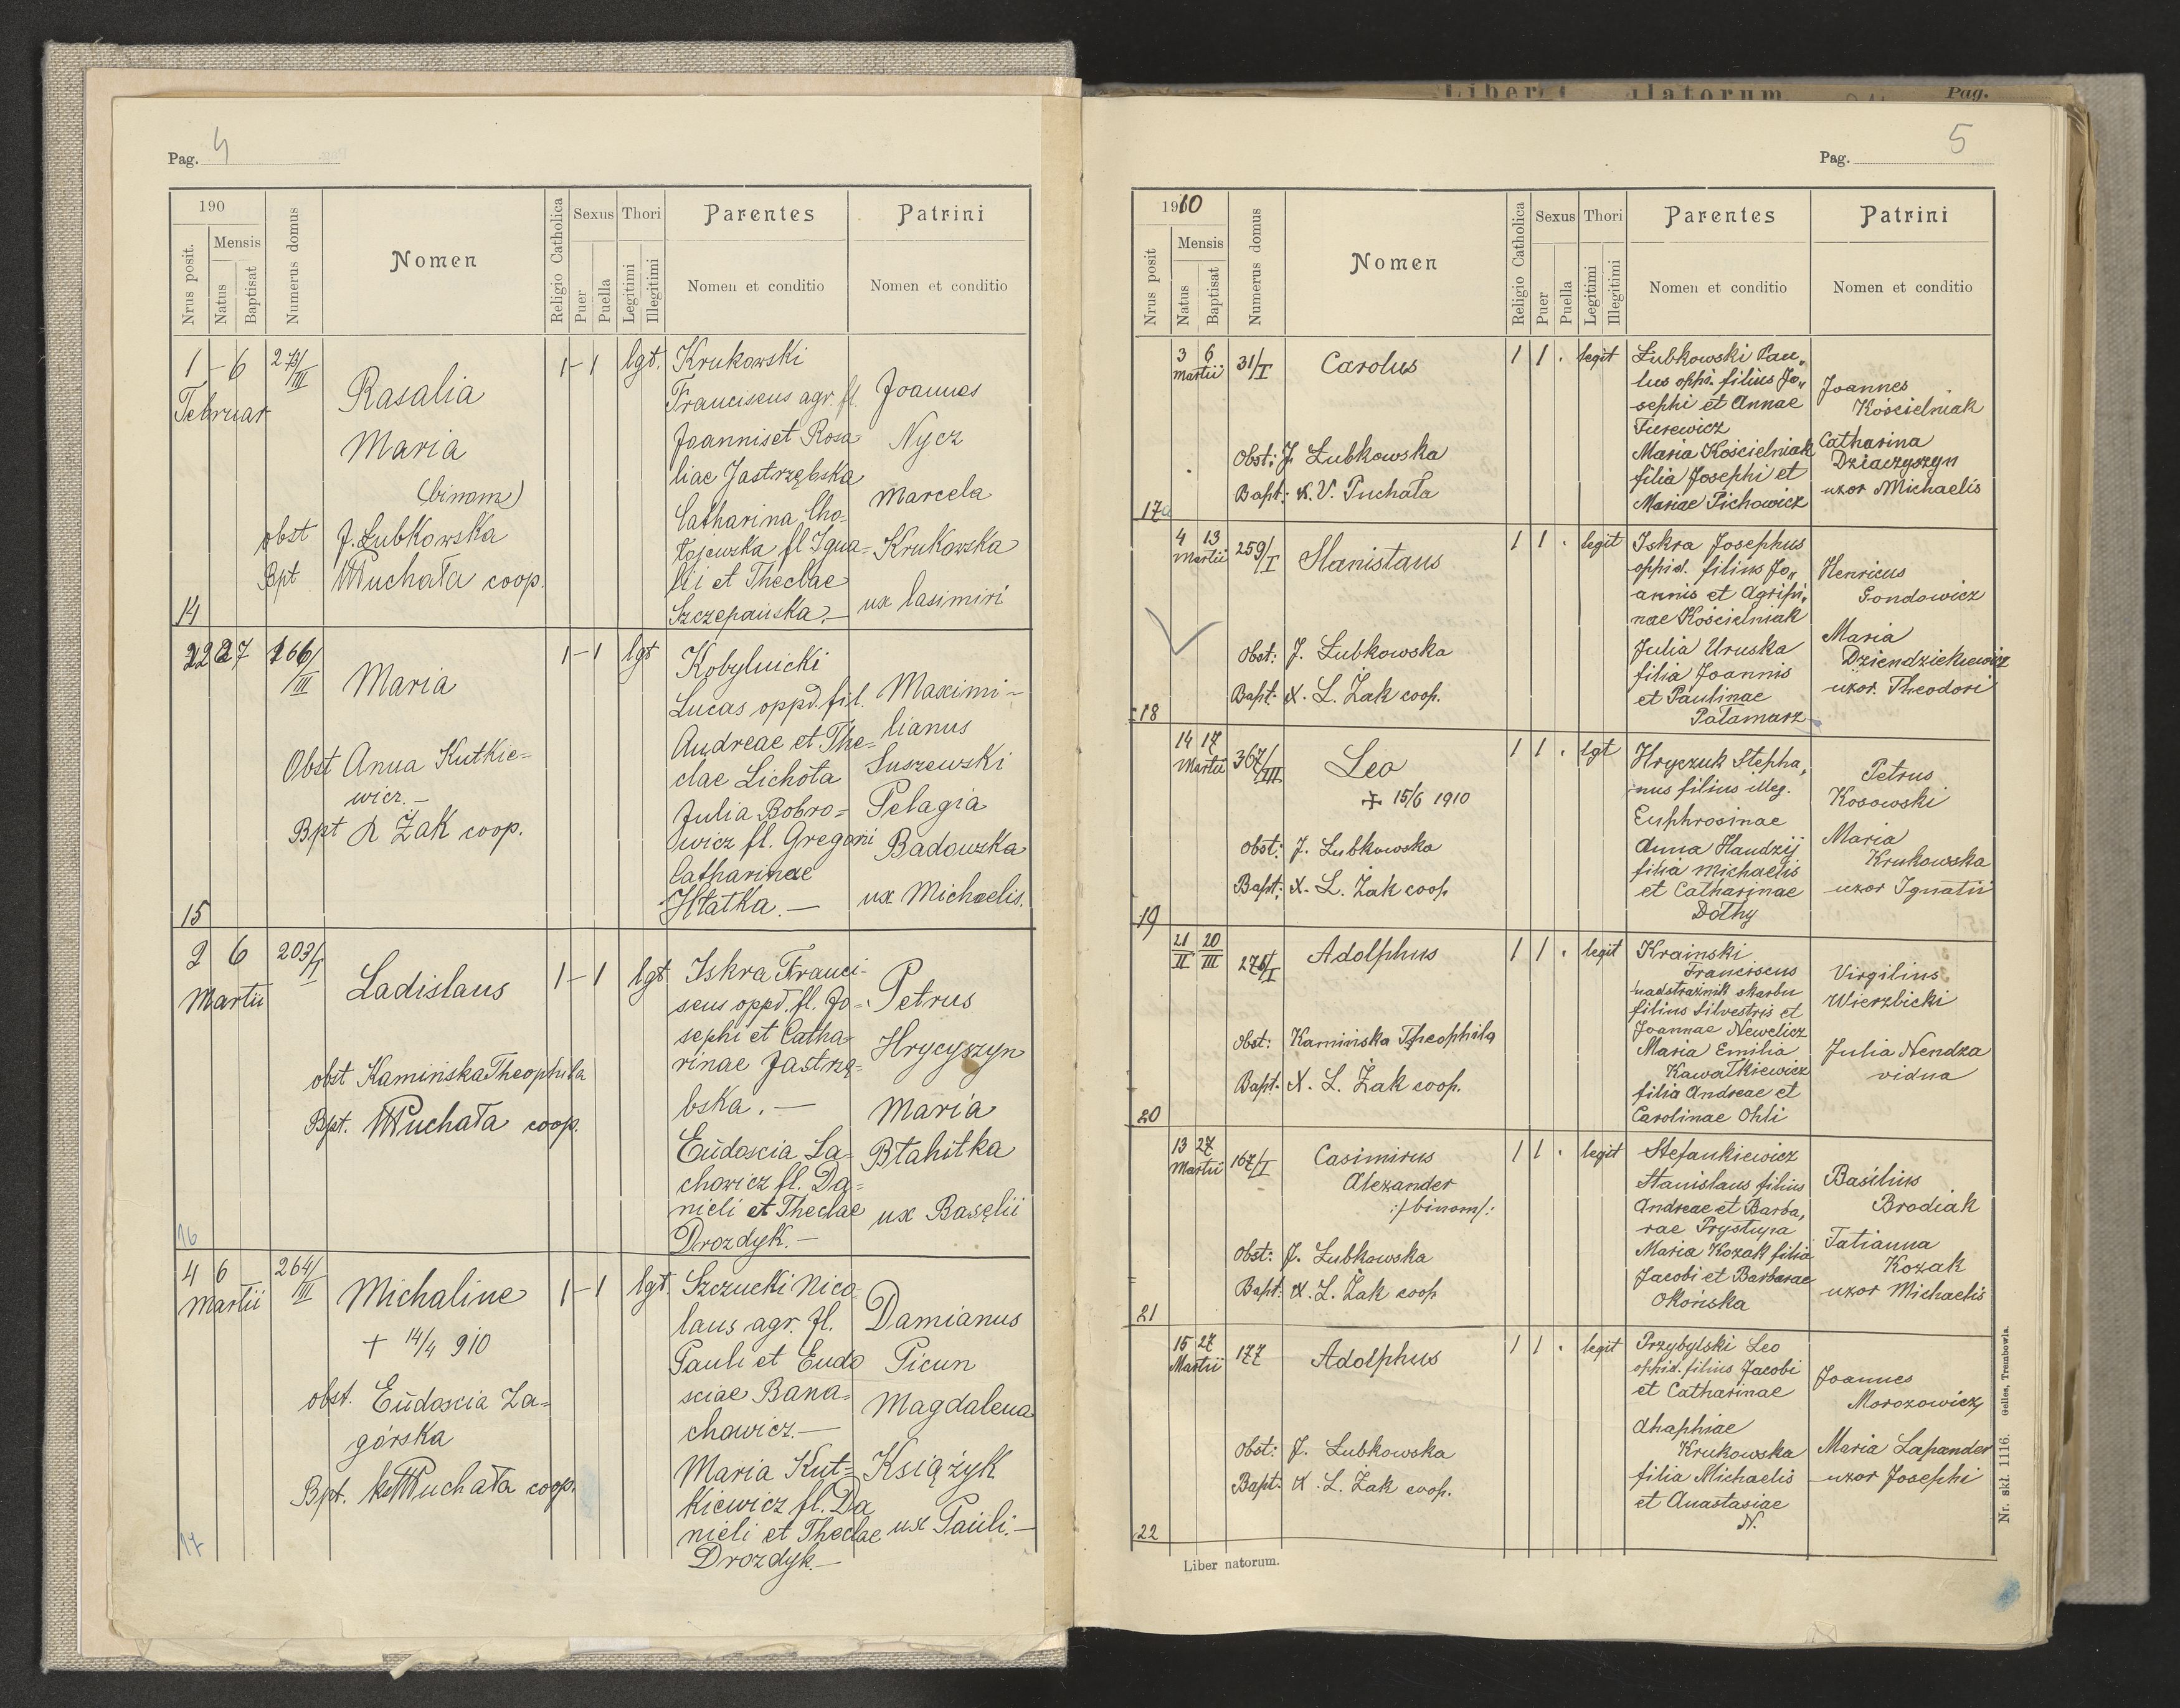 Pag. 4
190
Nrus posit.
Mensis
Natus
Baptisat
Numerus domus
Nomen
Religio Catholica
Sexus
Puer
Puella
Thori
Legitimi
Illegitimi
Parentes
Nomen et conditio
Patrini
Nomen et conditio
14
1 - 6
Februar
273/III
Rasalia
Maria
(binom)
obst J. Łubkowska
Bpt Puchała coop.
1 - 1
lgt.
Krukowski
Franciscus agr. fl.
Joannis et Rosa
liae Jastrzębska
Catharina Cho-
łojewska fl Igna=
tii et Theclae
Szczepańska.—
Joannes
Nycz
Marcela
Krukowska
ux Casimiri
15
22 27
166/III
Maria
Obst Anna Kutkie=
wicz.—
Bpt X Żak coop.
1 - 1
lgt
Kobylnicki
Lucas oppd. fil.
Andreae et The=
clae Lichota
Julia Bobro=
wicz fl. Gregorii
Catharinae
Hłatka.—
Maximi-
lianus
Suszewski
Pelagia
Badowska
ux Michaelis.
16
2 6
Martii
203/I
Ladislaus
obst Kamińska Theophila
Bpt. Puchała coop.
1 - 1
lgt
Iskra Franci-
scus oppd. fl. Jo=
sephi et Catha
rinae Jastrzę=
bska.—
Eudoxia La-
chowicz fl. Da=
nieli et Theclae
Drozdyk.—
Petrus
Hrycyszyn
Maria
Błahitka
ux Baselii
17
4 6
Martii
264/III
Michaline
+ 14/4 910
obst. Eudoxia Za=
górska
Bpt. Puchała coop.
1 - 1
lgt.
Szczucki Nico
laus agr. fl.
Pauli et Eudo
sciae Bana=
chowicz.—
Maria Kut=
kiewicz fl. Da
nieli et Theclae
Drozdyk.—
Damianus
Picun
Magdalena
Książyk
ux Pauli.—
Liber
latorum.
Pag.
5
Pag.
1910
Nrus posit
Mensis
Natus
Baptisat
Numerus domus
Nomen
Religio Catholica
Sexus
Puer
Puella
Thori
Legitimi
Illegitimi
Parentes
Nomen et conditio
Patrini
Nomen et conditio
17a
3 6
Martii
31/I
Carolus
Obst: J. Łubkowska
Bapt: X. V. Puchała
1 1 .
legit
Łubkowski Pau„
lus oppi. filius Jo„
sephi et Annae
Turewicz
Maria Kościelniak
filia Josephi et
Mariae Pichowicz
Joannes
Kościelniak
Catharina
Dziaczyszyn
uxor Michaelis
18
4 13
Martii
259/I
Stanislaus
Obst: J. Łubkowska
Bapt: X. L. Żak coop.
1 1 .
legit
Iskra Josephus
oppid. filius Jo„
annis et Agripi„
nae Kościelniak
Julia Uruska
filia Joannis
et Paulinae
Pałamarz
Henricus
Gondowicz
Maria
Dziendziekiewicz
uxor. Theodori
19
14 17
Martii
367/III
Leo
+ 15/6 1910
Obst: J. Łubkowska
Bapt: X. L. Żak coop
1 1 .
lgt
Hryczuk Stepha„
nus filius illeg.
Euphrosinae
Anna Handzij
filia Michaelis
et Catharinae
Dothy
Petrus
Kosowski
Maria
Krukowska
uxor Ignatii
20
21/II 20/III
276/I
Adolphus
Obst: Kamińska Theophila
Bapt: X. L. Żak coop.
1 1 .
legit
Krainski
Franciscus
nadstrażnik skarbu
filius Silvestris et
Joannae Newelicz
Maria Emilia
Kawałkiewicz
filia Andreae et
Carolinae Ohli
Virgilius
Wierzbicki
Julia Nendza
vidua
21
13 27
Martii
167/I
Casimirus
Alexander
:/binom/:
Obst: J. Łubkowska
Bapt: X. L. Żak coop
1 1 .
legit
Stefankiewicz
Stanislaus filius
Andreae et Barba„
rae Prystupa
Maria Kozak filia
Jacobi et Barbarae
Okońska
Basilius
Brodiak
Tatianna
Kozak
uxor Michaelis
22
15 27
Martii
177
Adolphus
Obst: J. Łubkowska
Bapt: X. L. Żak coop.
1 1 .
legit
Przybylski Leo
oppid. filius Jacobi
et Catharinae
Ahaphiae
Krukowska
filia Michaelis
et Anastasiae
N.
Joannes
Morozowicz
Maria Lapander
uxor Josephi
Liber natorum.
Nr. skl. 1116. Gelles, Trembowla.